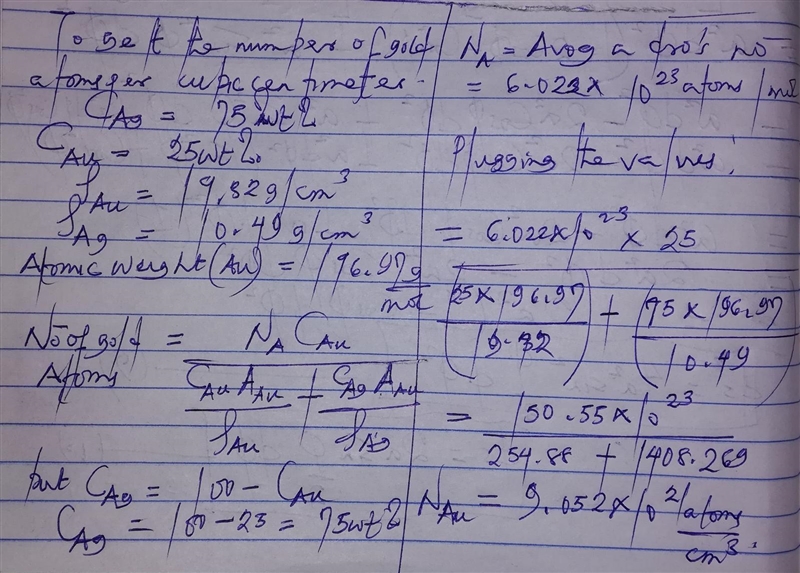 To get the number of gold
atoms per cubic centimeter.
C_Ag = 75 wt%
C_Au = 25wt%
ρ_Au = 19.32g/cm³
ρ_Ag = 10.49 g/cm³
Atomic weight (Au) = 196.97g/mol
No of gold Atoms = N_A C_Au / (C_Au A_Au / ρ_Au + C_Ag A_Au / ρ_Ag)
but C_Ag = 100 - C_Au
C_Ag = 100 - 25 = 75wt%
N_A = Avogadro's no
= 6.022 x 10²³ atoms/mol
Plugging the values;
= 6.022x10²³ x 25 / ((25 x 196.97 / 19.32) + (75 x 196.97 / 10.49))
= 150.55 x 10²³ / 254.88 + 1408.269
N_Au = 9.052 x 10²¹ atoms/cm³.